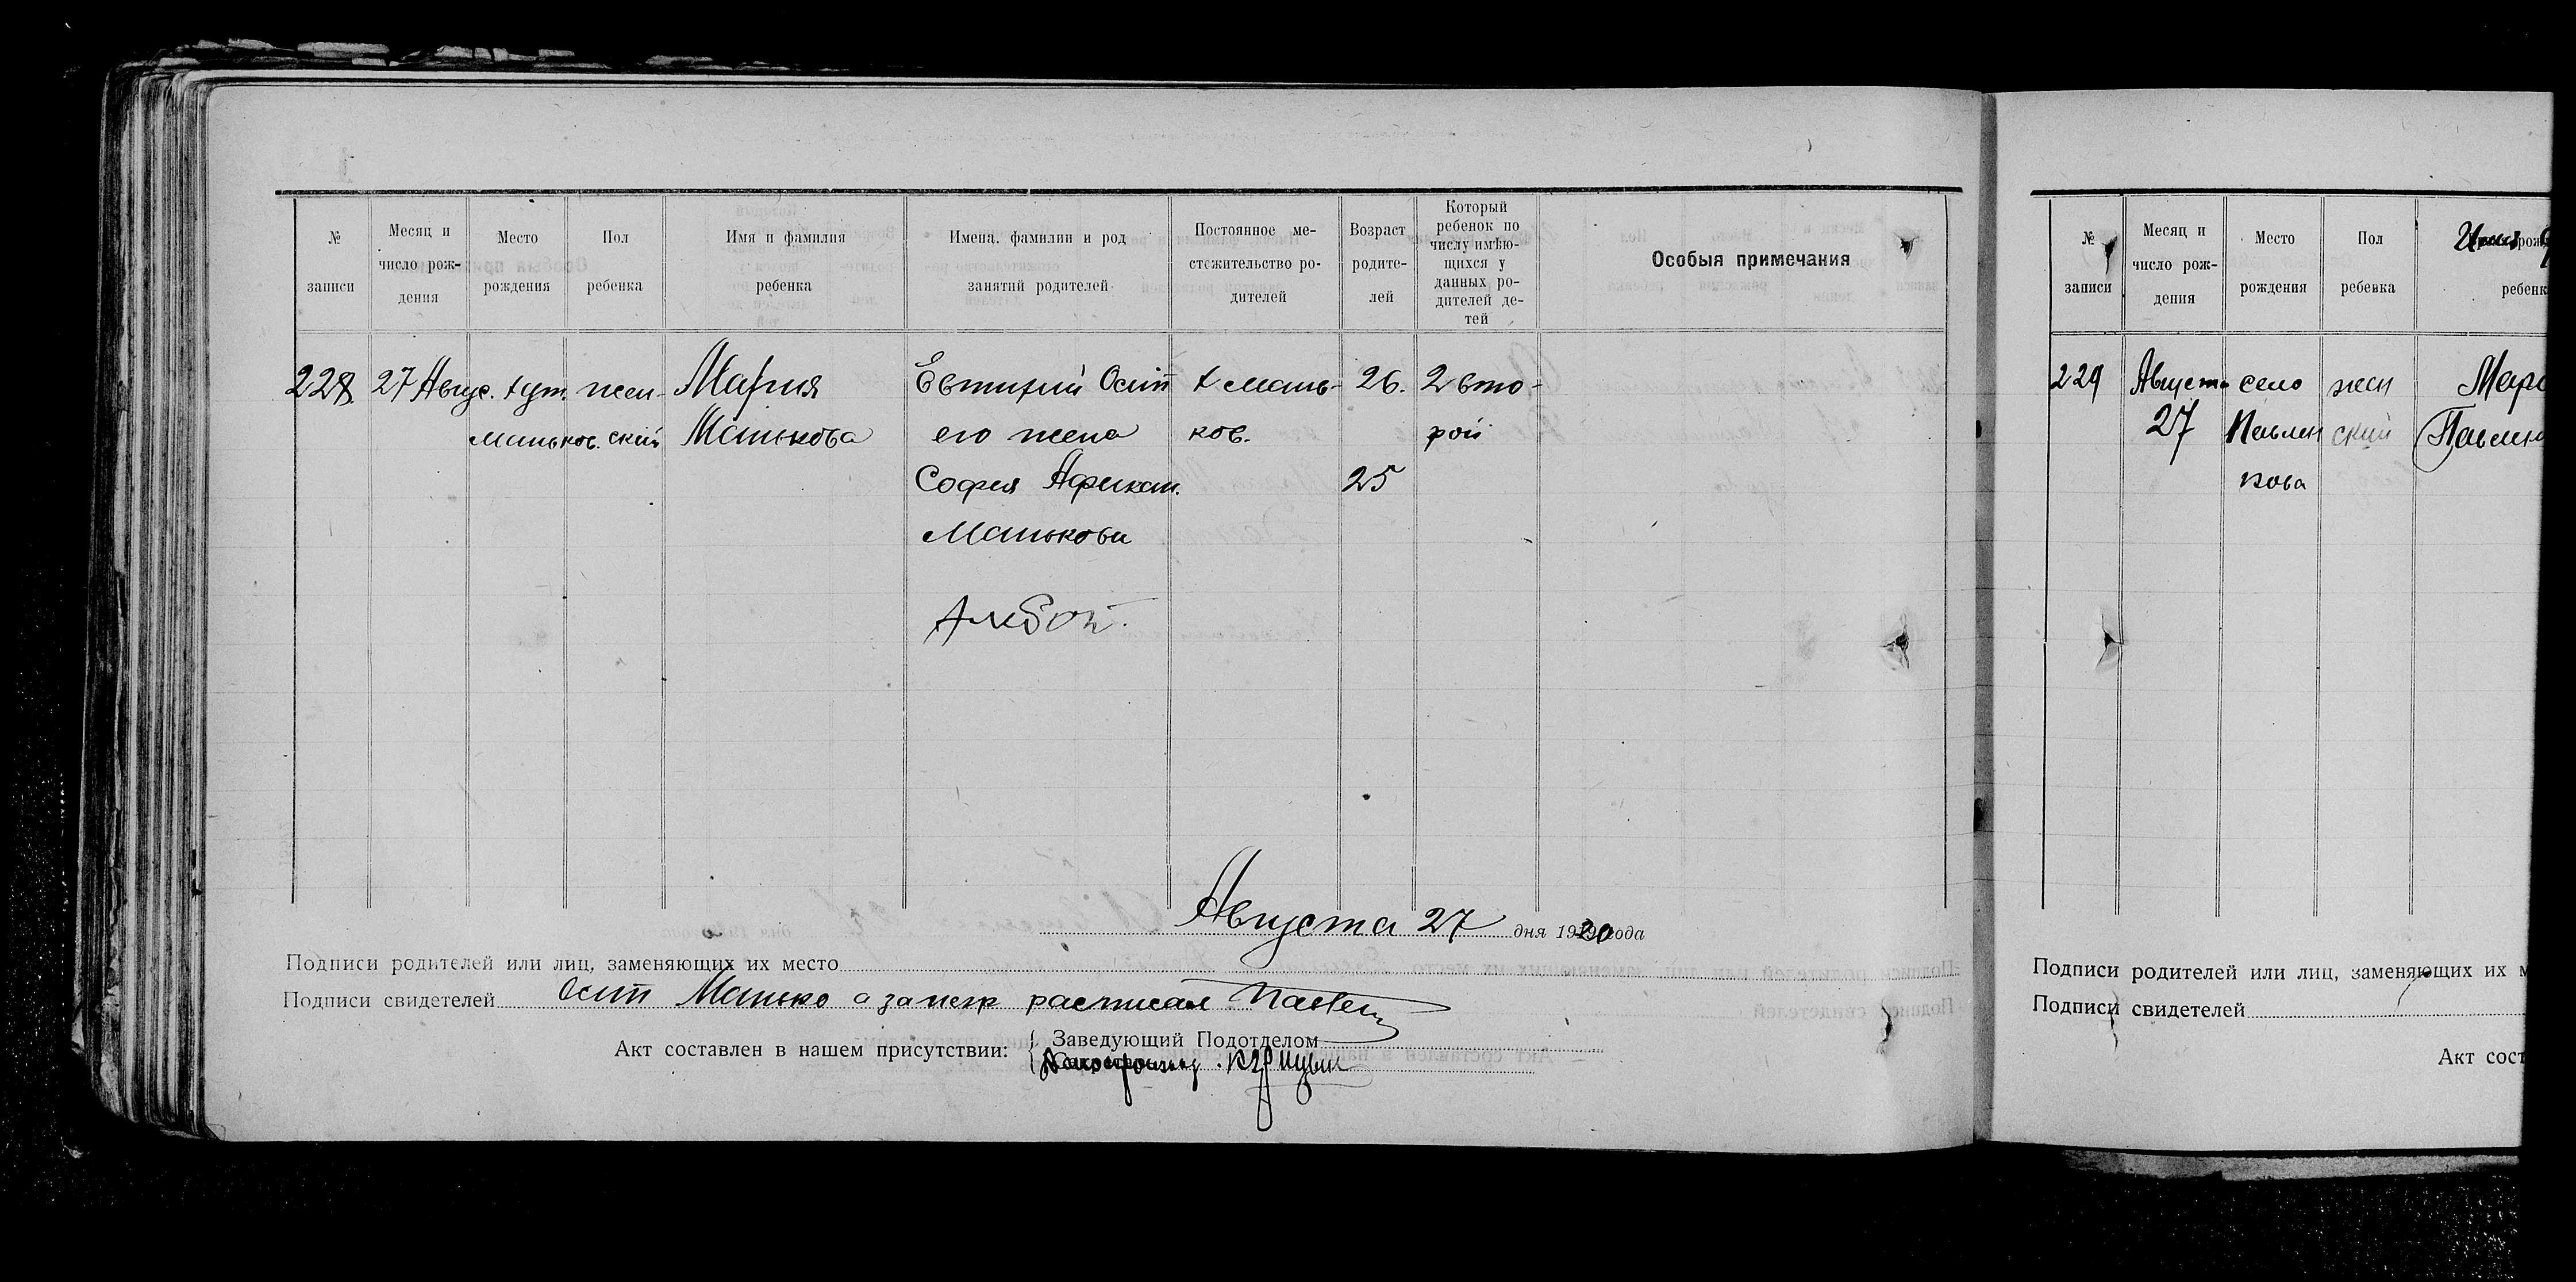 № записи
Месяц и число рож- дения
Место рождения
Пол ребенка
Имя и фамилия ребенка
Имена. фамилии и род занятий родителей
Постоянное ме- стожительство ро- дителей
Возраст родите- лей
Который ребенок по числу имѣю- щихся у данных ро- дителей де- тей
Особыя примечания
228. 27 Авгус. хут. жен- Мария Евтихий Осип х Мань- 26. 2 вто-
Маньков. ский Манькова его жена ков. рой
София Африкан. 25
Манькова
Августа 27 дня 1920 года
Подписи родителей или лиц, заменяющих их место
Подписи свидетелей Осип Манько а за неж расписал
Акт составлен в нашем присутствии: { Заведующий Подотделом
№ записи
Месяц и число рож- дения
Место рождения
Пол ребенка
ребенк
229 Август село жен Мар
27 Павлен ский Павлен
кова
Подписи родителей или лиц, заменяющих их м
Подписи свидетелей
Акт сост